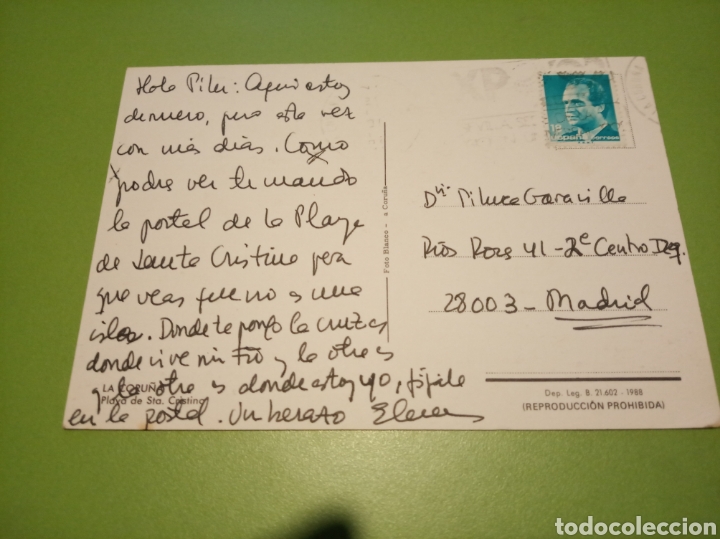 Hola Pilu: Aqui estoy
de nuevo, pero esta vez
con más días. Como
podras ver te mando
la postal de la Playa
de Santa Cristina para
que veas que no es una
isla. Donde te pongo la cruz es
donde vive mi tío y la otra es
y la otra es donde estoy yo, fijate
en la postal. Un besazo Elena
LA CORUÑA
Playa de Sta. Cristina
Foto Blanco - a Coruña
España correos
Dñª Piluca Garavilla
Ríos Rosas 41 - 2º Centro Dcq.
28003 - Madrid
Dep. Leg. B. 21.602 - 1988
(REPRODUCCIÓN PROHIBIDA)
todocoleccion